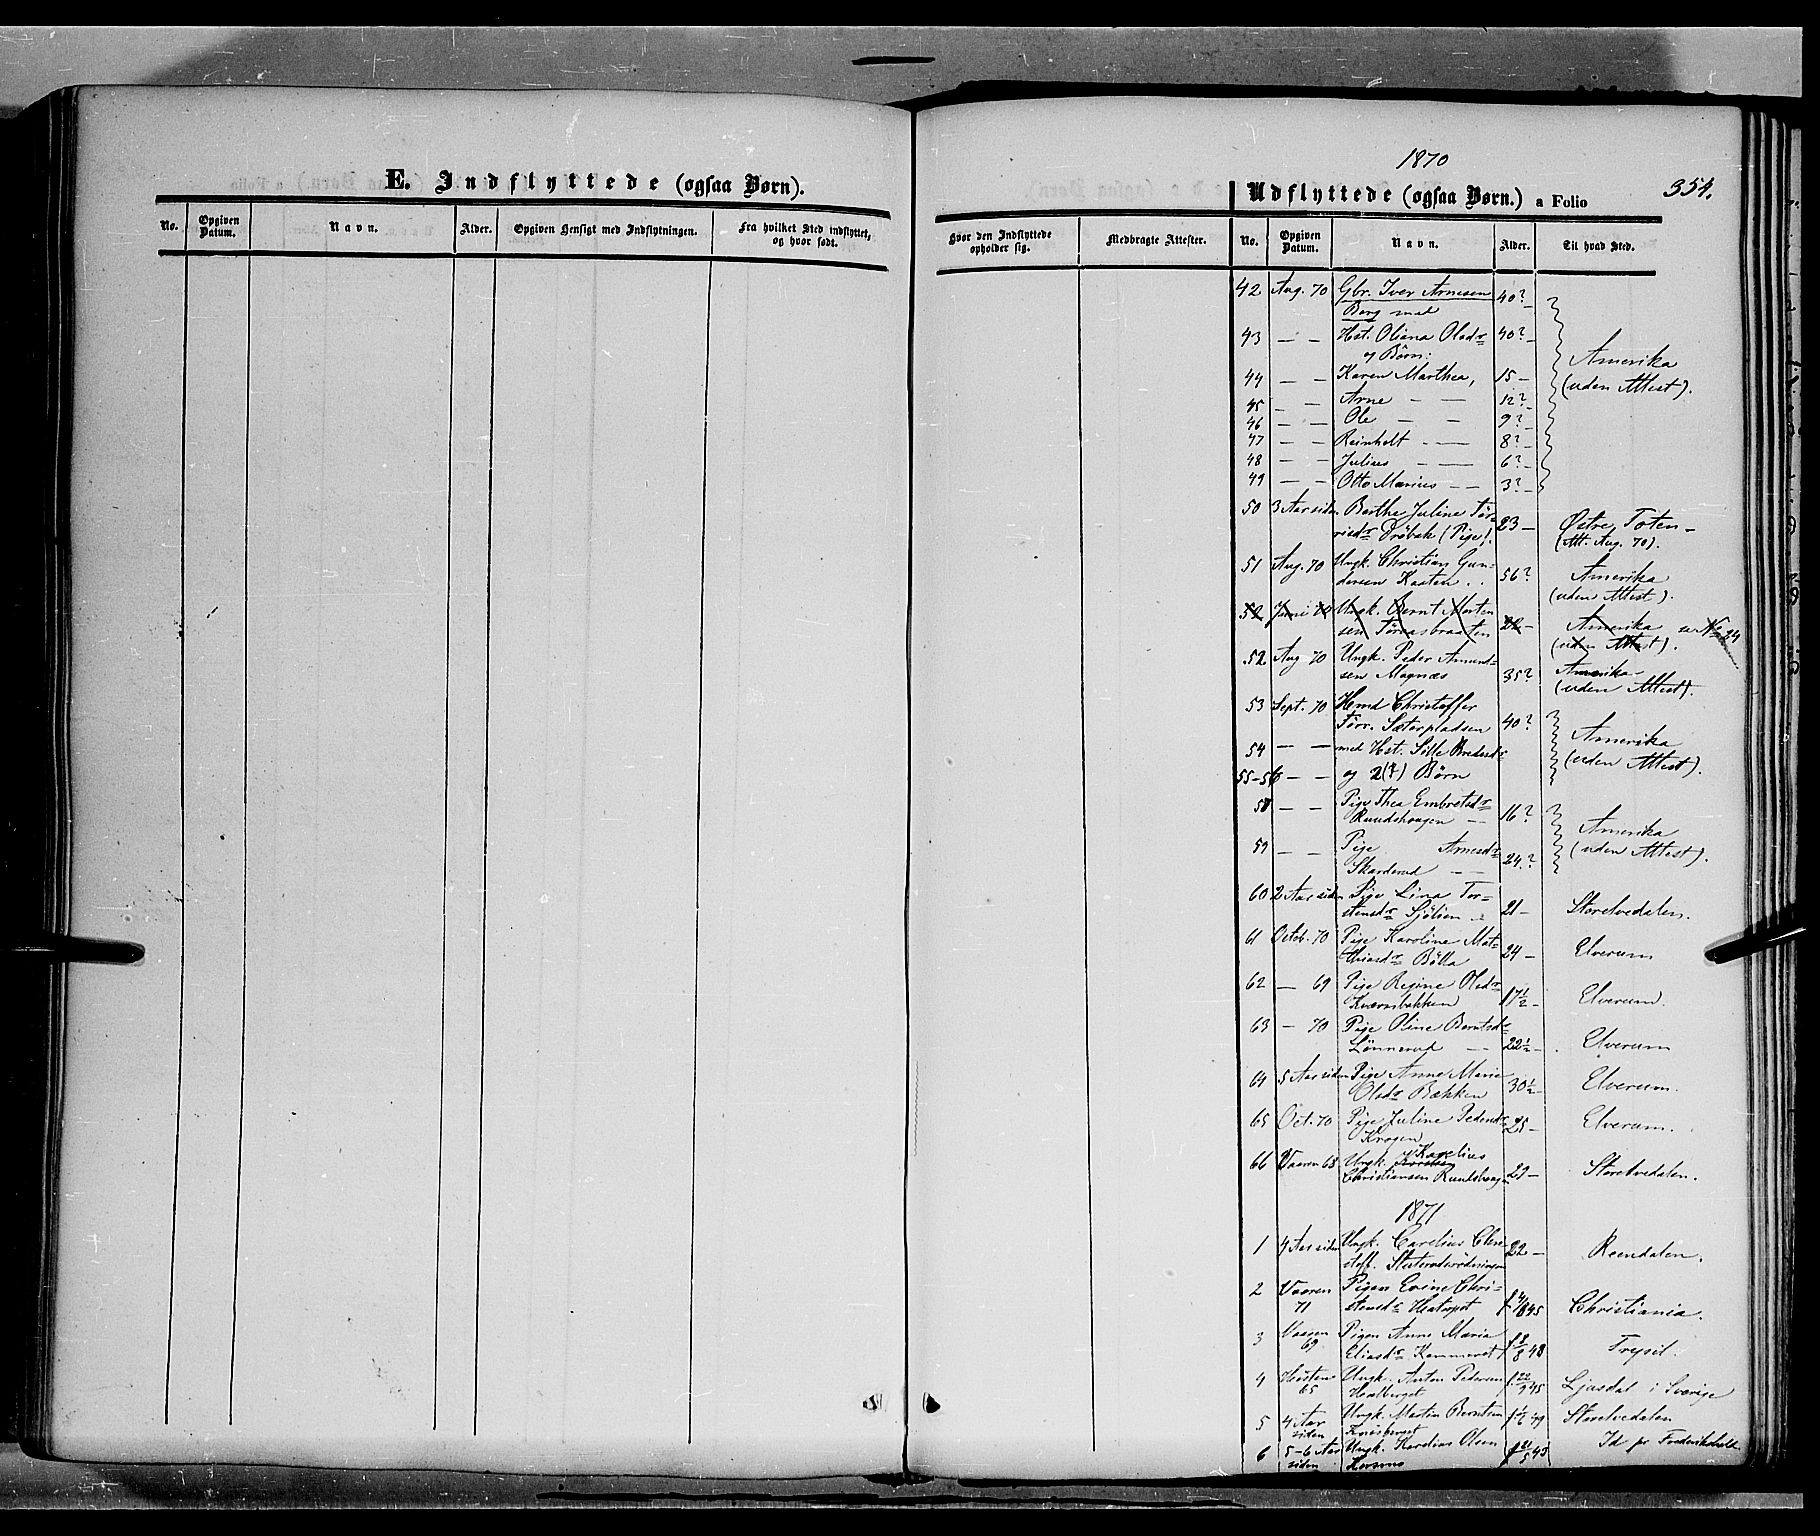 E. Indflyttede (ogsaa Børn).
No. Opgiven Datum. Navn. Alder. Opgiven Hensigt med Indflytningen. Fra hvilket Sted indflyttet, og hvor født.
1870
Udflyttede (ogsaa Børn.) a Folio 354.
Hvor den Indflyttede opholder sig. Medbragte Attester. No. Opgiven Datum. Navn. Alder. Til hvad Sted.
42 Aug. 70 Gbr. Iver Arnesen 40?
Berg med
43 — — Hst. Oliana Olsdr 40? —
og Børn:
Amerika
44 — — Karen Marthea, 15 —
(uden Attest).
45 — — Arne — — 12? —
46 — — Ole — — 9? —
47 — — Reinholt — — 8? —
48 — — Julius — — 6? —
49 — — Otto Marius — — 3? —
50 3 Aar siden Berthe Juline Tør-
risdr Drøbak (Pige). 23 — Østre Toten —
(Att. Aug. 70).
51 Aug. 70 Ungk. Christian Gun-
dersen Kasten . . 56? Amerika
(uden Attest).
52 Juni 70 Ungk. Bernt Morten
sen Tøraasbraaten 22 — Amerika se No 24
(uden Attest).
52 Aug 70 Ungk. Peder Amund-
sen Magnæs 35? Amerika
(uden Attest).
53 Sept. 70 Hmd Christoffer
Törr. Sæterpladsen 40?
Amerika
54 — — med Hst. Sille Bredesdr
(uden Attest).
55-56 — — og 2(?) Børn
58 — — Pige Thea Embretsdr
Rundhaugen — 16?
Amerika
59 — — Pige Arnesdr
(uden Attest).
Skarderud — — 24?
60 2 Aar siden Pige Lina Tor-
stensdr Sjölien 21 — Storelvedalen.
61 Octob. 70 Pige Karoline Mat-
thiasdr Bölla 24 — Elverum
62 — 69 Pige Regine Olsdr
Kværnbakken 17½ — Elverum.
63 — 70 Pige Oline Berntsdr
Lönnerud — 22½ — Elverum
64 5 Aar siden Pige Anne Marie
Olsdr Bækken 30½ — Elverum.
65 Oct. 70 Pige Juline Pedersdr
Krogen 25 — Elverum.
66 Vaaren 68 Ungk. Karelius
Christiansen Rundhaugen 29 — Storelvedalen.
1871
1 4 Aar siden Ungk. Carelius Chri-
stoff. 22 — Reendalen.
2 Vaaren 71 Pigen Evine Chri-
stensdr 4/1 845 Christiania.
3 Vaaren 69 Pigen Anne Maria
Eliasdr Kammeret 8/8 48 Trysil.
4 Høsten 65 Ungk. Anton Pedersen
Hvalberget 22/9 45 Ljusdal i Sverige
5 4 Aar siden Ungk. Martin Berntsen
49 Storelvedalen
6 5-6 Aar siden Ungk. Karelius Olsen
21/5 45 Id pr Frederikshald